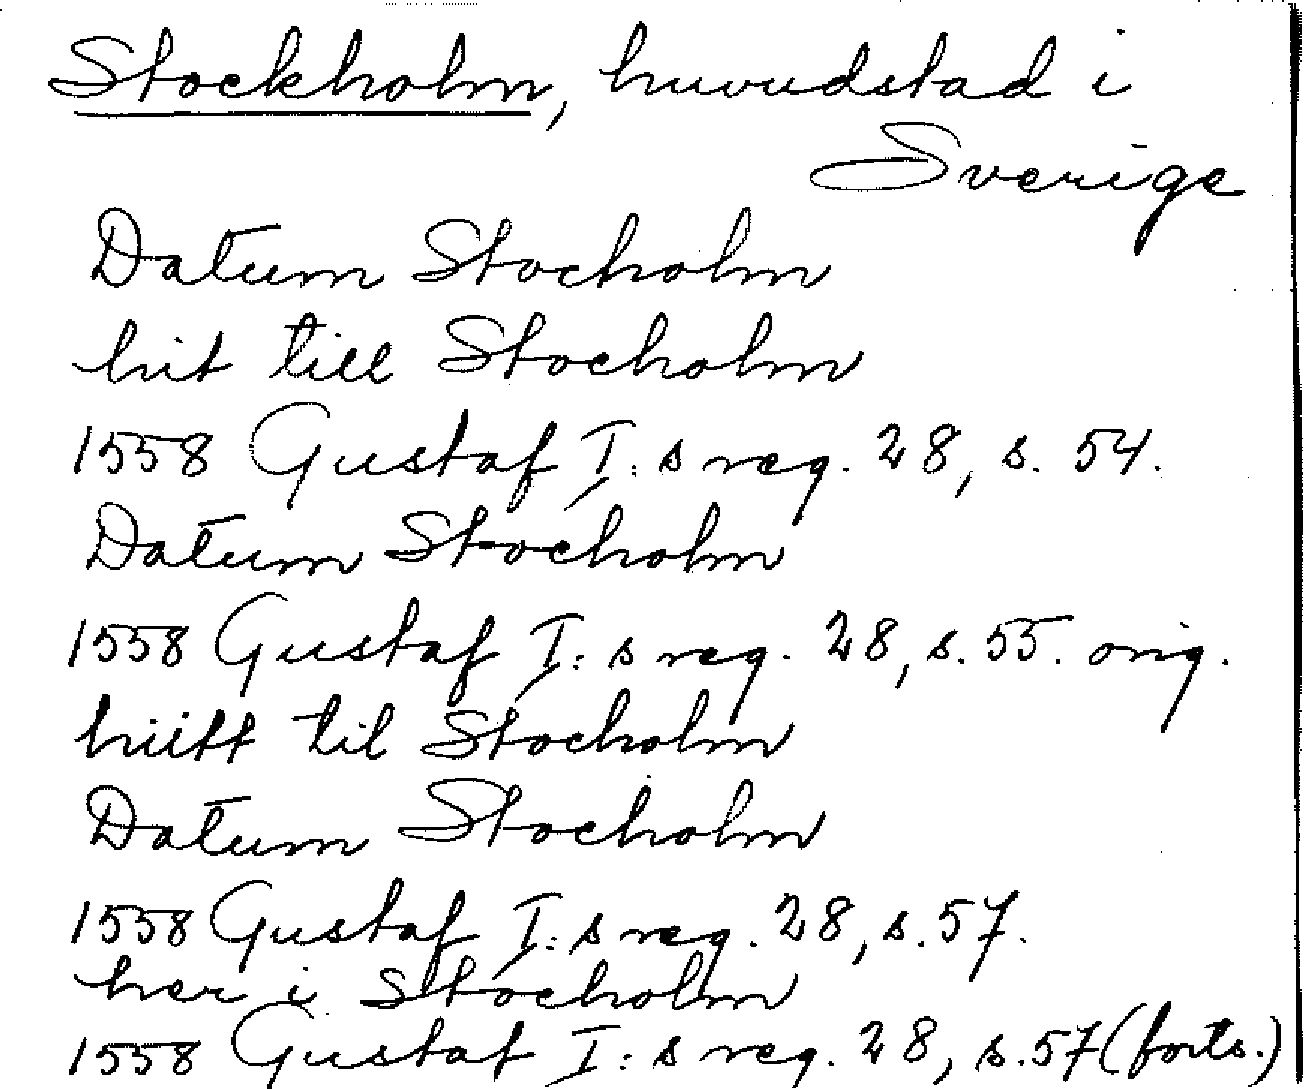 Stockholm, huvudstad i
Sverige
Datum Stocholm
hit till Stocholm
1558 Gustaf I: s reg. 28, s. 54.
Datum Stocholm
1558 Gustaf I: s reg. 28, s. 55. orig.
hiitt til Stocholm
Datum Stocholm
1558 Gustaf I: s reg. 28, s. 57.
her i Stocholm
1558 Gustaf I: s reg. 28, s. 57 (forts.)